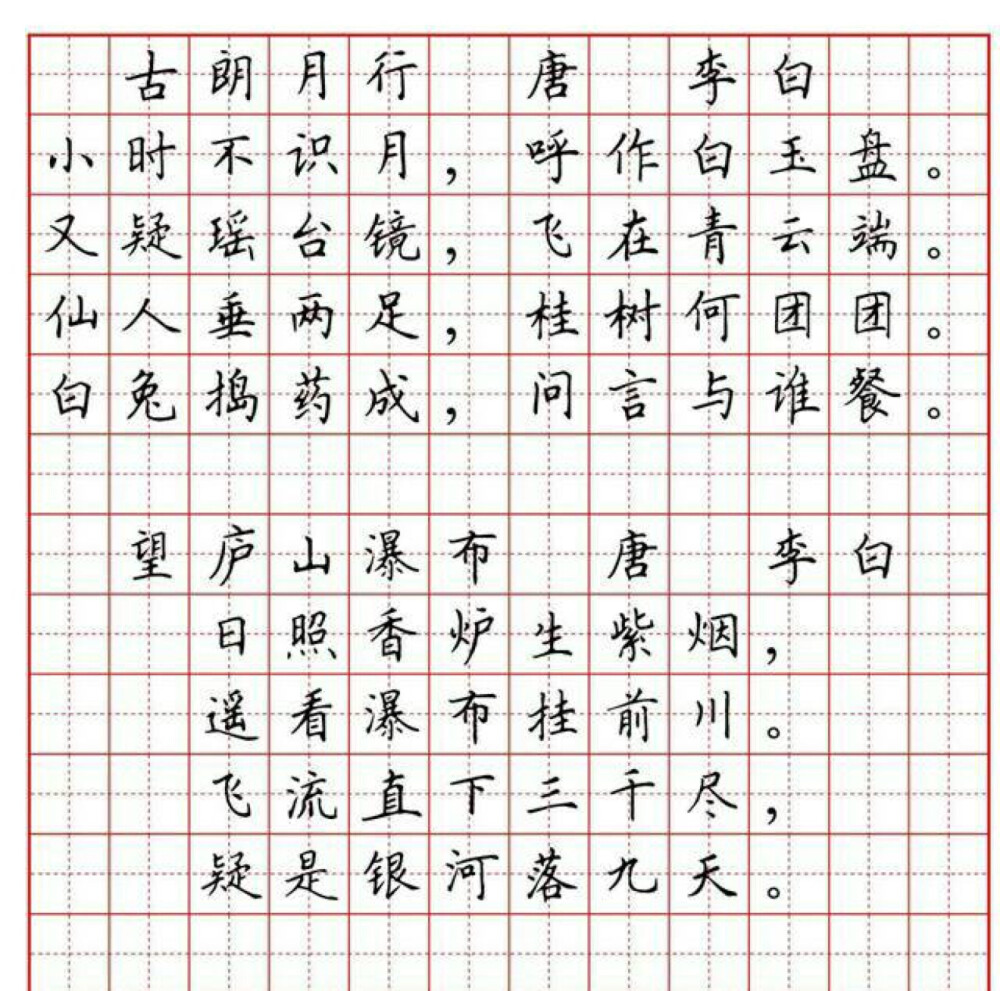 古朗月行 唐 李白
小时不识月，呼作白玉盘。
又疑瑶台镜，飞在青云端。
仙人垂两足，桂树何团团。
白兔捣药成，问言与谁餐。
望庐山瀑布 唐 李白
日照香炉生紫烟，
遥看瀑布挂前川。
飞流直下三千尽，
疑是银河落九天。